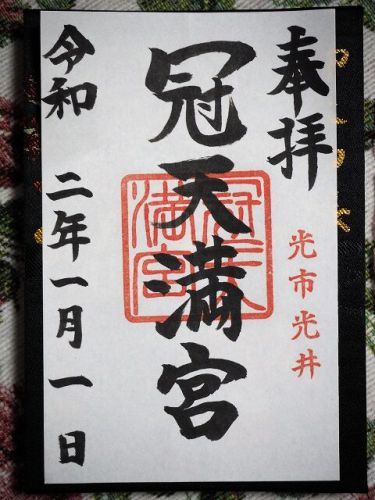 奉拝
光市光井
冠天満宮
令和二年一月一日